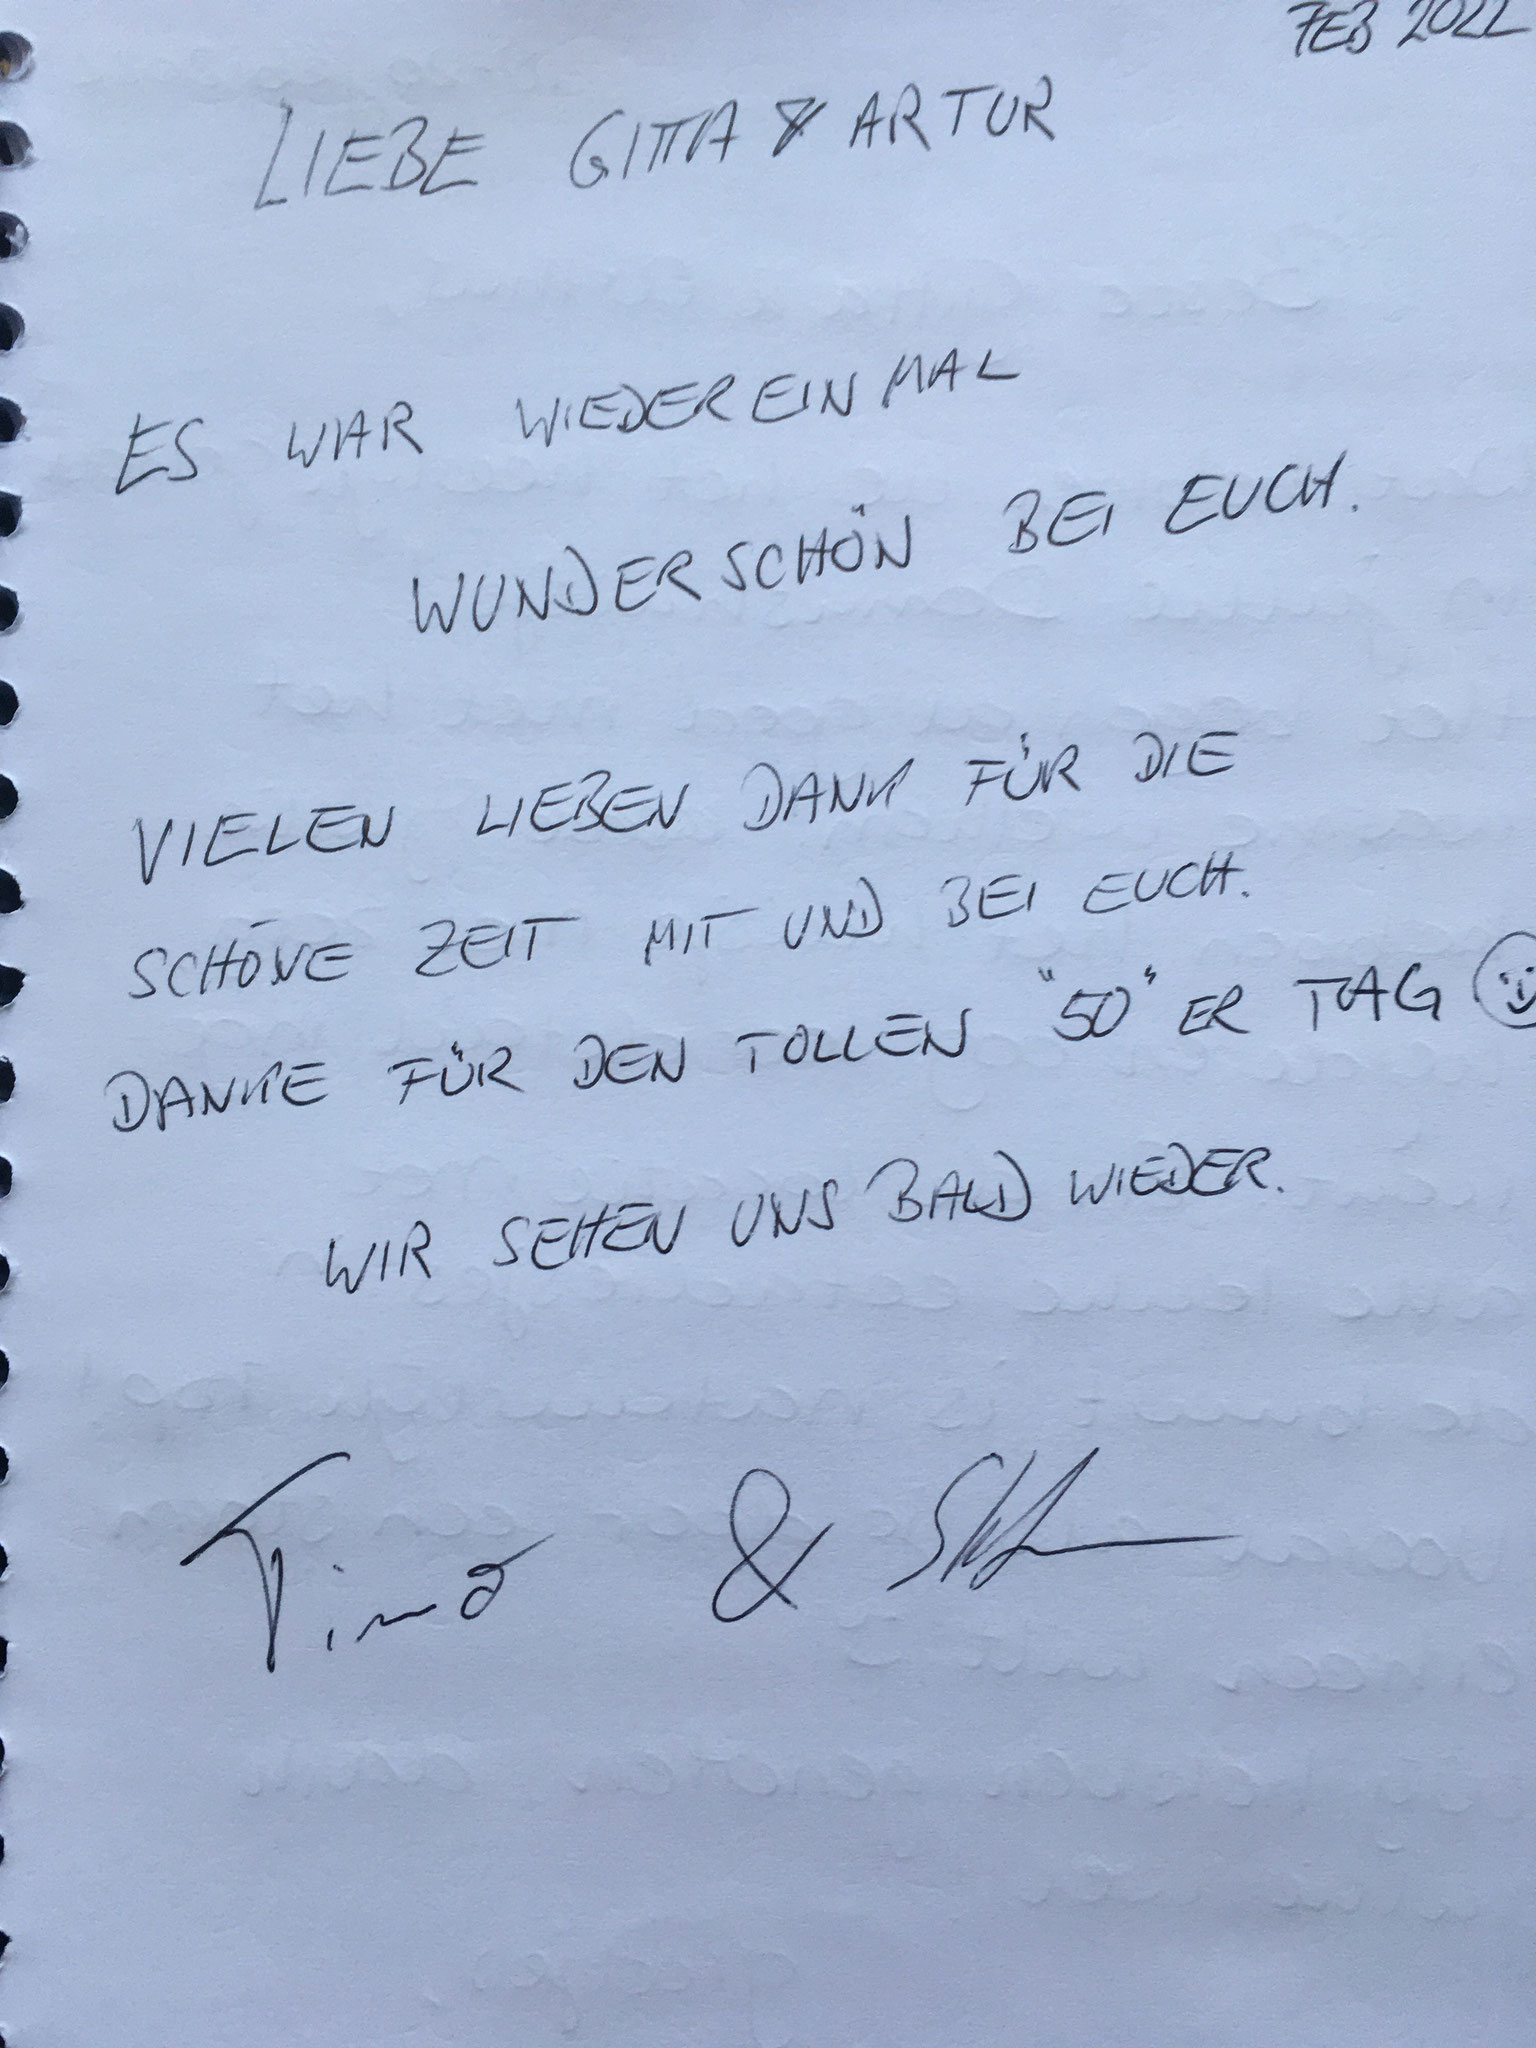 FEB 2022
LIEBE GITTA & ARTUR
ES WAR WIEDEREINMAL
WUNDERSCHÖN BEI EUCH.
VIELEN LIEBEN DANK FÜR DIE
SCHÖNE ZEIT MIT UND BEI EUCH.
DANKE FÜR DEN TOLLEN "50"ER TAG
WIR SEHEN UNS BALD WIEDER.
Timo &